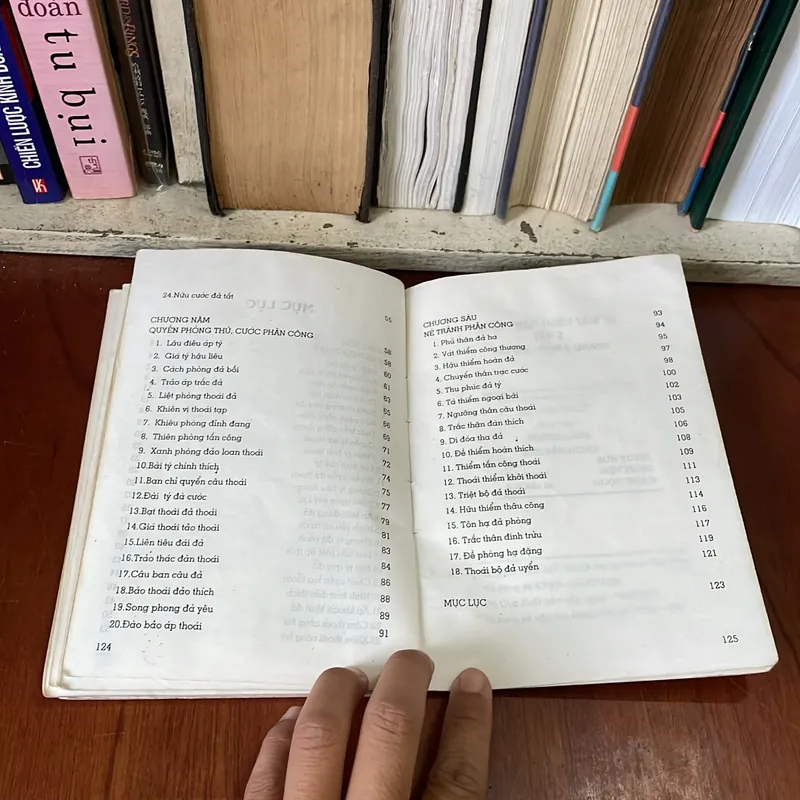 doán
CHIẾN LƯỢC KINH
24.Nửu cước đả tất 55
CHƯƠNG NĂM
QUYỀN PHÒNG THỦ, CƯỚC PHẢN CÔNG 56
1. Lâu điêu áp tý 58
2. Giá tý hậu liêu 60
3. Cách phòng đả bối 61
4. Trảo áp trắc đả 63
5. Liệt phòng thoái đả 65
6. Khiên vị thoái tạp 66
7. Khiêu phòng đinh đang 69
8. Thiên phòng tấn công 71
9. Xanh phòng đảo loan thoái 72
10.Bài tý chính thích 74
11.Ban chỉ quyển câu thoái 75
12.Đài tý đả cước 77
13.Bạt thoái đả thoái 79
14.Giá thoái tảo thoái 81
15.Liên tiêu đái đả 83
16.Trảo thác đàn thoái 84
17.Cầu ban câu đả 86
18.Bảo thoái đảo thích 88
19.Song phong đả yêu 89
20.Đào bảo áp thoái 91
124
CHƯƠNG SÁU
NÉ TRÁNH PHẢN CÔNG 93
1. Phủ thân đả hạ 94
2. Vát thiểm công thượng 95
3. Hậu thiểm hoàn đả 97
4. Chuyển thân trạc cước 98
5. Thu phúc đả tý 100
6. Tả thiểm ngoại bãi 102
7. Ngưỡng thân câu thoái 103
8. Trắc thân đàn thích 105
9. Di đóa tha đả 106
10. Đề thiểm hoàn thích 108
11. Thiểm tấn công thoái 109
12. Thoái thiểm khởi thoái 111
13. Triệt bộ đả thoái 113
14. Hữu thiểm thâu công 114
15. Tôn hạ đả phòng 116
16. Trắc thân đỉnh trửu 117
17. Đề phòng hạ dặng 119
18. Thoái bộ đả uyển 121
MỤC LỤC 123
125